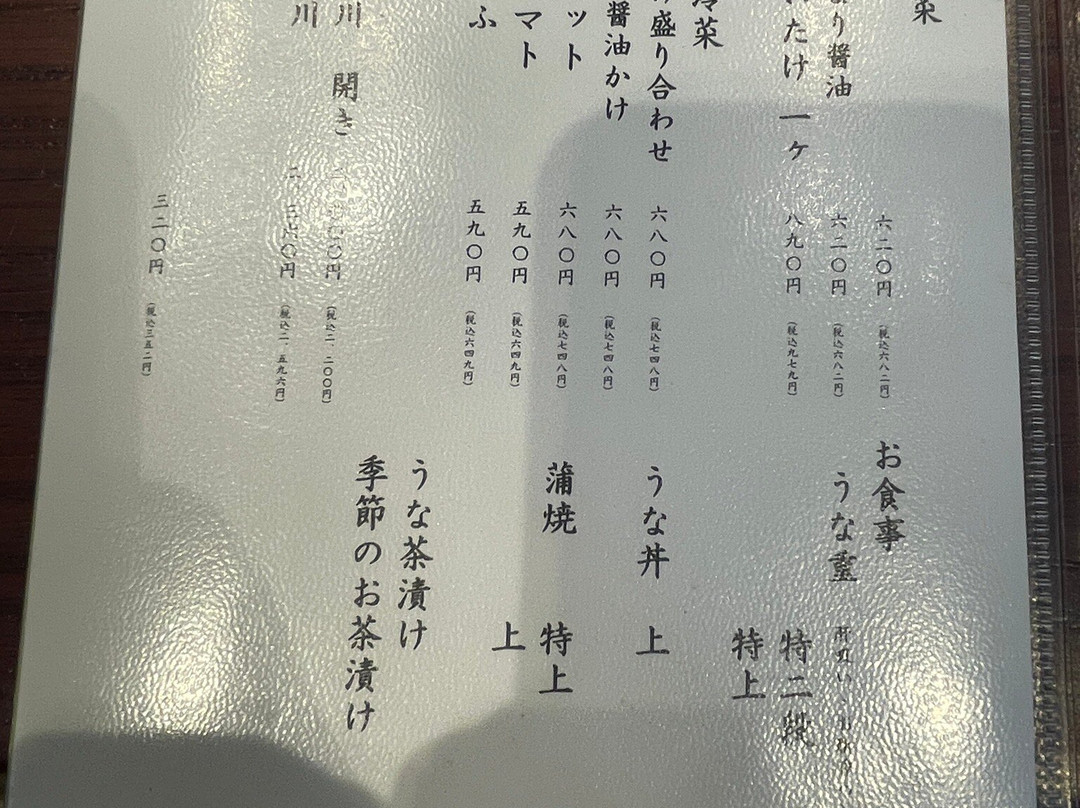 菜
り醤油
たけ 一ヶ
冷菜
盛り合わせ
醤油かけ
ット
マト
ふ
川 開き
川
六二〇円 (税込六八二円)
六二〇円 (税込六八二円)
八九〇円 (税込九七九円)
六八〇円 (税込七四八円)
六八〇円 (税込七四八円)
六八〇円 (税込七四八円)
五九〇円 (税込六四九円)
五九〇円 (税込六四九円)
(税込二、二〇〇円)
二、三六〇円 (税込二、五九六円)
三二〇円 (税込三五二円)
お食事
うな重
特二段
特上
うな丼 上
蒲焼 特上
上
うな茶漬け
季節のお茶漬け